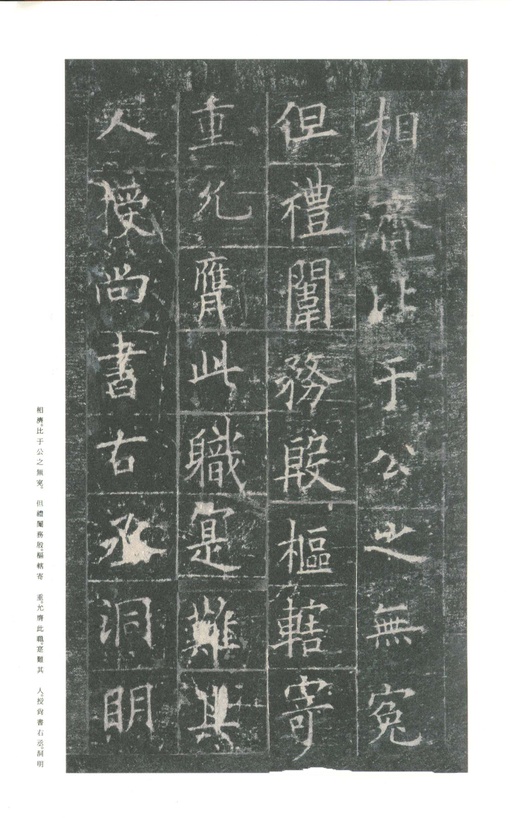 相濟比于公之無寃
但禮闈務殷樞轄寄
重允膺此職寔難其
人授尚書右丞洞明
相濟比于公之無寃。但禮闈務殷樞轄寄 重允膺此職寔難其 人授尚書右丞洞明